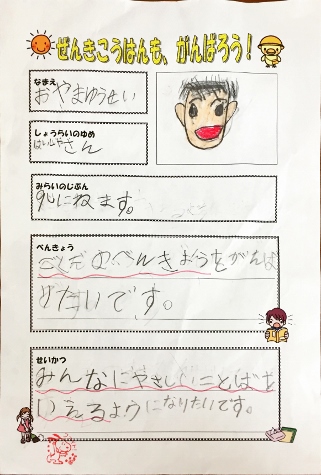 ぜんきこうはんも、がんばろう！
なまえ
おやまゆうせい
しょうらいのゆめ
はいしゃさん
みらいのじぶん
9じにねます。
べんきょう
ことばのべんきょうをがんば
りたいです。
せいかつ
みんなにやさしいことばを
いえるようになりたいです。